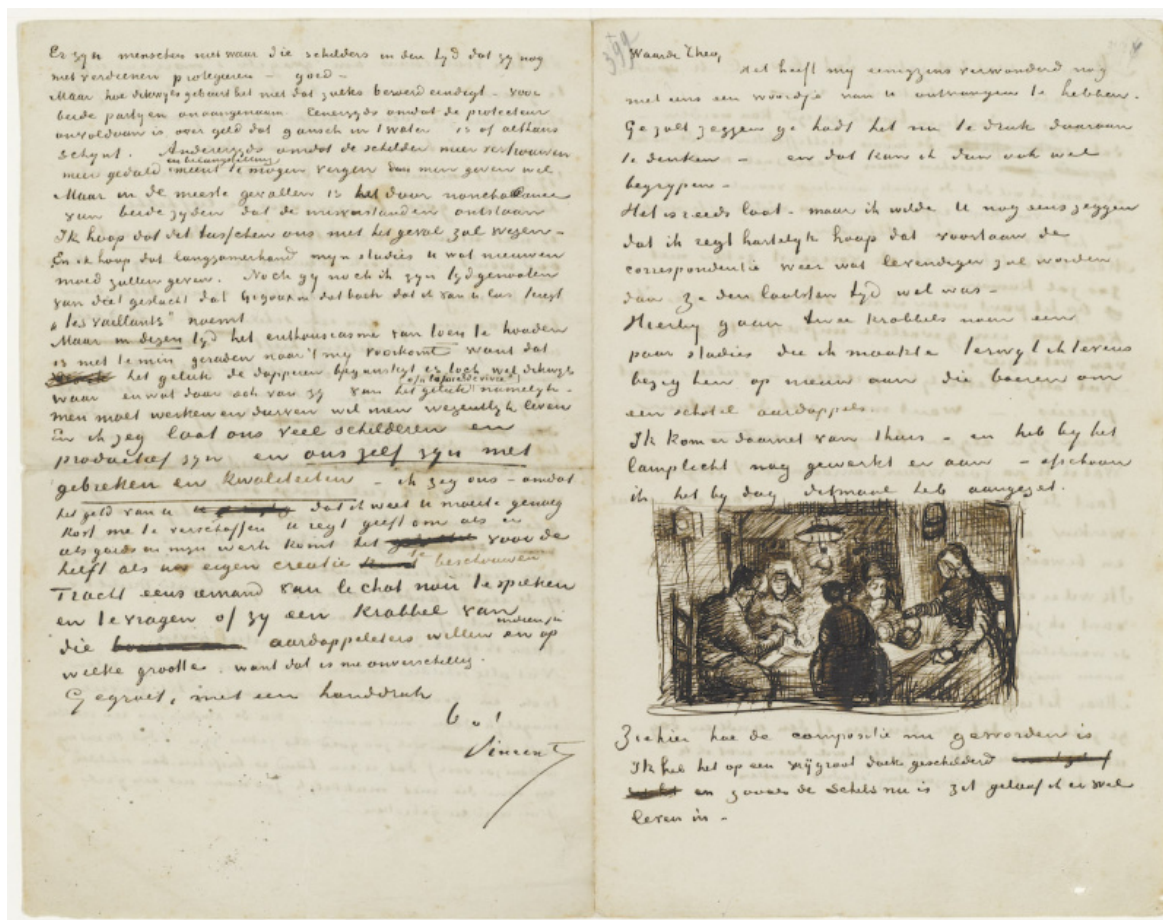 Er zyn menschen niet waar die schilders in den tyd dat zy nog
niet verdienen protegeren – goed –
Maar hoe dikwyls gebeurt het niet dat zulks beroerd eindigt – voor
beide partyen onaangenaam. Eenerzyds omdat de protecteur
onvoldaan is over geld dat gansch in 't water is of althans
schynt. Anderzyds omdat de schilder meer vertrouwen
meer geduld en belangstelling meent te mogen vergen dan men geven wil
Maar in de meeste gevallen is het door nonchalance
van beide zyden dat de misverstanden ontstaan
Ik hoop dat dit tusschen ons niet het geval zal wezen –
En ik hoop dat langzamerhand myn studies U wat nieuwen
moed zullen geven. Noch gy noch ik zyn tydgenooten
van dat geslacht dat Gigoux in dat boek dat ik van U las teregt
„les vaillants" noemt
Maar in dezen tyd het enthousiasme van toen te houden
is niet te min geraden naar 't my voorkomt want dat
het geluk de dapperen begunstigt is toch wel dikwyls
waar en wat daar ook van zy van het geluk of la joie de vivre namelyk –
men moet werken en durven wil men wezentlyk leven
En ik zeg laat ons veel schilderen en
productief zyn en ons zelf zyn met
gebreken en kwaliteiten – ik zeg ons – omdat
het geld van U dat ik weet U moeite genoeg
kost me te verschaffen U regt geeft om als er
iets goeds in myn werk komt het voor de
helft als uw eigen creatie te beschouwen
Tracht eens iemand van le chat noir te spreken
en te vragen of zy een krabbel van
die aardappeleters willen en zoo ja op
welke grootte. want dat is me onverschillig.
Gegroet, met een handdruk
b. à t.
Vincent
Waarde Theo,
Het heeft my eenigzins verwonderd nog
niet eens een woordje van U ontvangen te hebben.
Ge zult zeggen ge hadt het nu te druk daaraan
te denken – en dat kan ik dan ook wel
begrypen –
Het is reeds laat – maar ik wilde U nog eens zeggen
dat ik regt hartelyk hoop dat voortaan de
correspondentie weer wat levendiger zal worden
dan ze den laatsten tyd wel was –
Hierby gaan twee krabbels naar een
paar studies die ik maakte terwyl ik tevens
bezig ben op nieuw aan die boeren om
een schotel aardappels.
Ik kom er daarnet van thuis – en heb by het
lamplicht nog gewerkt er aan – ofschoon
ik het by dag ditmaal heb aangezet.
Ziehier hoe de compositie nu geworden is
Ik heb het op een vrij groot doek geschilderd
en zooals de schets nu is zit geloof ik er wel
leven in –